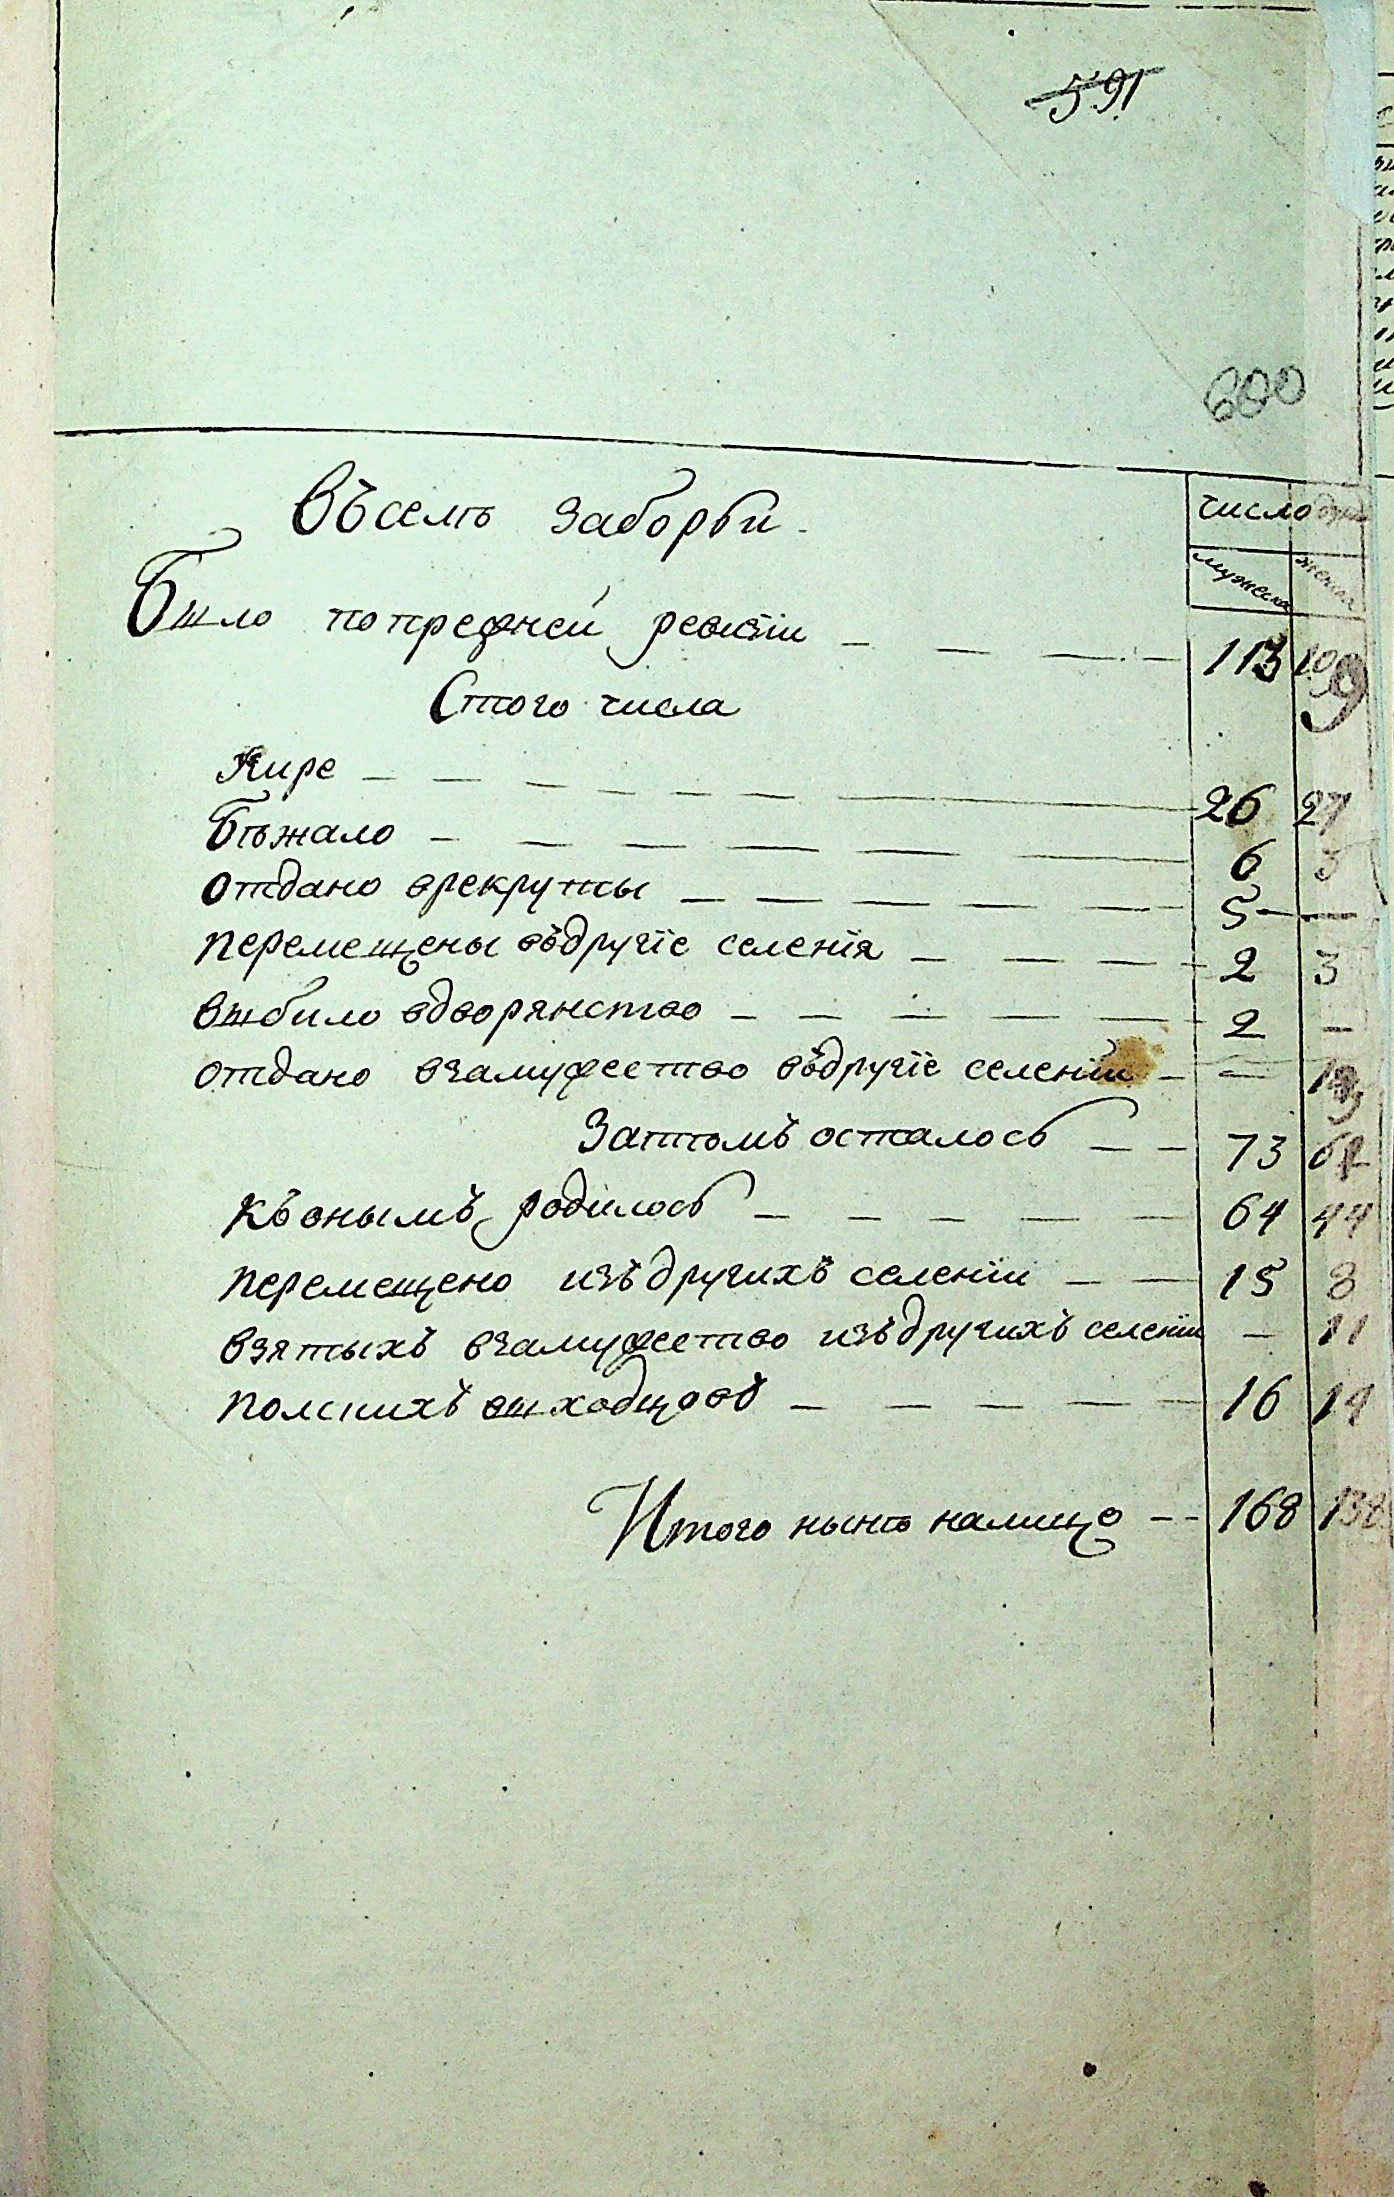 591
600
Въселѣ Заборьи
число душъ
мужеска женска
Было попрежней ревизіи 113 109
Стого числа
Умре 26 27
Бѣжало 6 3
Отдано врекруты 5 —
перемещены въдругіе селенія 2 3
выбыло вдворянство 2 —
отдано взамужество въдругіе селеніи —
Затѣмъ осталось 73
къонымъ родилось 64 44
перемещено изъдругихъ селеніи 15 8
взятыхъ взамужество изъдругихъ селеніи — 11
полскихъ выходцовъ 16 14
Итого нынѣ налицо 168 138